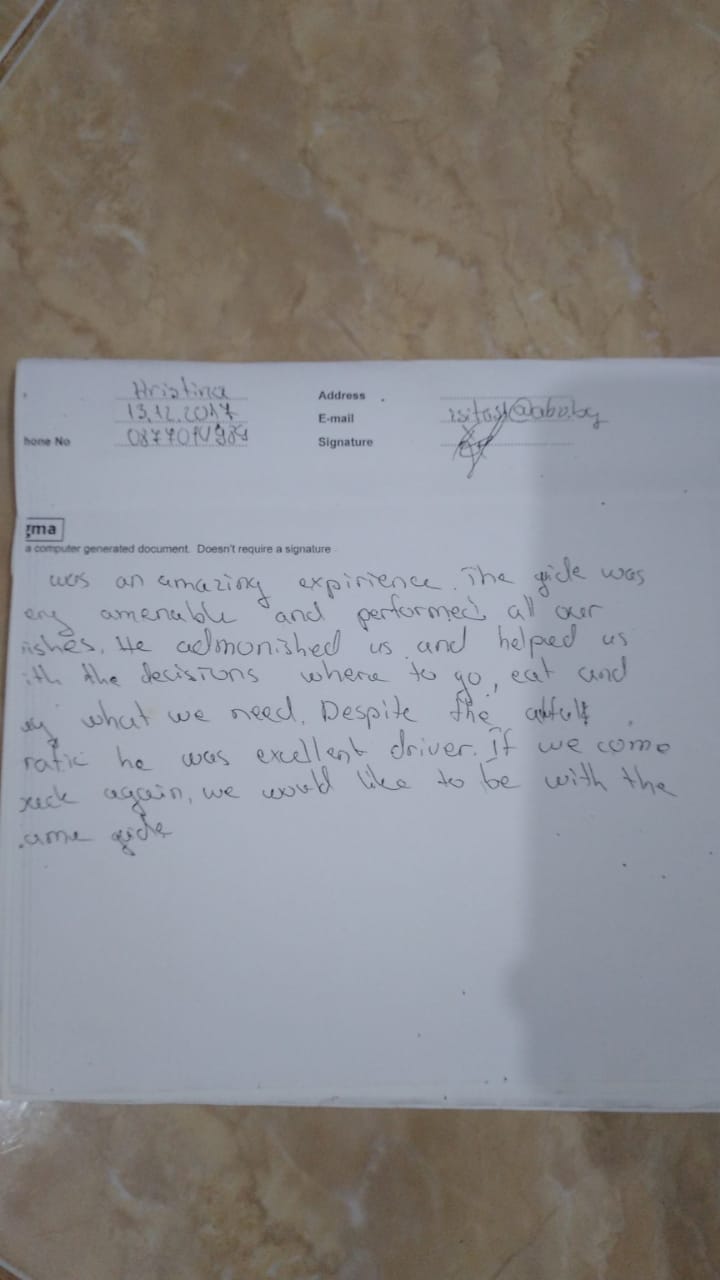 Hristina Address
13.12.2017 E-mail
hone No Signature
gma
a computer generated document. Doesn't require a signature
was an amazing expirience. The gide was
ery amenable and performed all our
ishes. He admonished us and helped us
ith the decisions where to go, eat and
uy what we need. Despite the
rafic he was excellent driver. If we come
again, we would like to be with the
ame gide